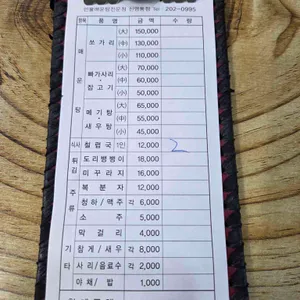 202-0995
품 명 금 액 수 량
매운탕
쏘가리 (大) 150,000
(中) 130,000
(小) 110,000
빠가사리 · 잡고기 (大) 70,000
(中) 60,000
(小) 50,000
메기탕 새우탕 (大) 65,000
(中) 55,000
(小) 45,000
식사 철렵국 1인 12,000 2
튀김 도리뱅뱅이 18,000
미꾸라지 16,000
주류 복분자 12,000
청하/맥주 각 6,000
소주 5,000
막걸리 4,000
기타 참게/새우 각 8,000
사리/음료수 각 2,000
야채/밥 1,000